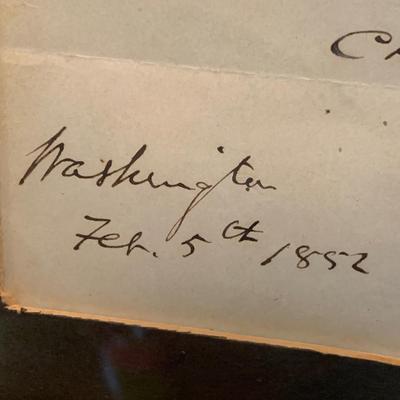 Washington
Feb. 5th 1852